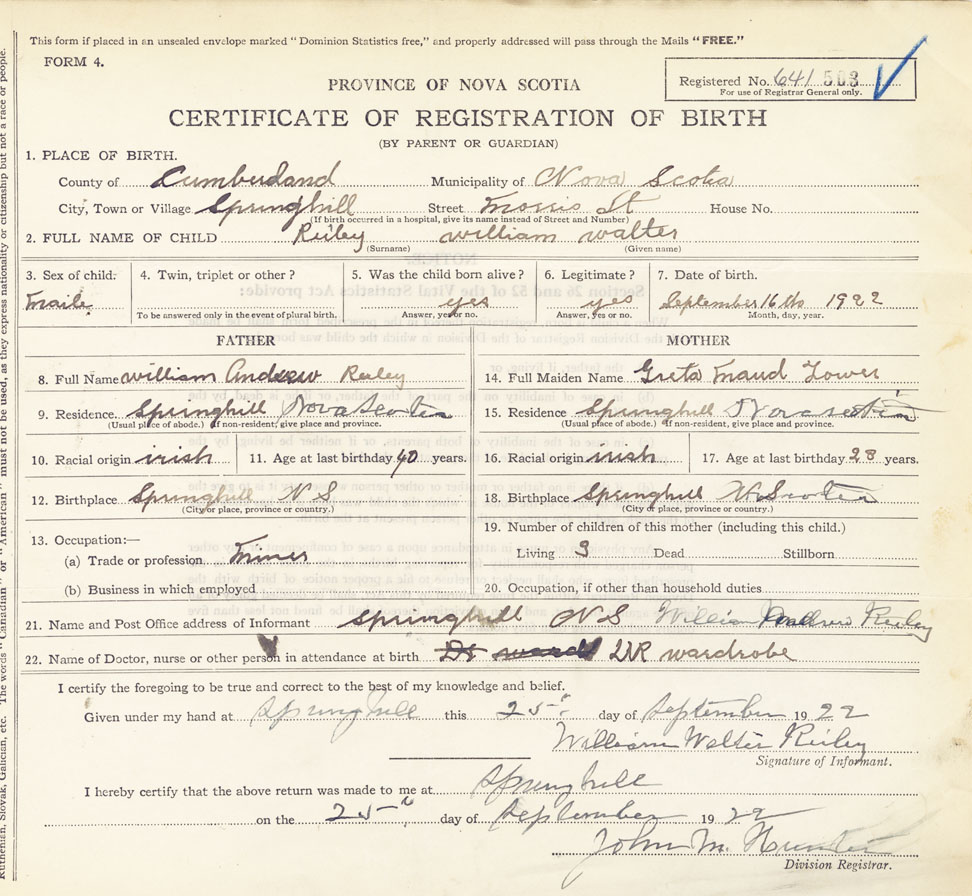 This form if placed in an unsealed envelope marked "Dominion Statistics free," and properly addressed will pass through the Mails "FREE."
FORM 4.
Registered No. 641 503
For use of Registrar General only.
PROVINCE OF NOVA SCOTIA
CERTIFICATE OF REGISTRATION OF BIRTH
(BY PARENT OR GUARDIAN)
1. PLACE OF BIRTH.
County of Cumberland Municipality of Nova Scotia
City, Town or Village Springhill Street Morris St House No.
(If birth occurred in a hospital, give its name instead of Street and Number)
2. FULL NAME OF CHILD Reiley william walter
(Surname) (Given name)
3. Sex of child: 4. Twin, triplet or other? 5. Was the child born alive? 6. Legitimate? 7. Date of birth.
Maile yes yes September 16 th 1922
To be answered only in the event of plural birth. Answer, yes or no. Answer, yes or no. Month, day, year.
FATHER MOTHER
8. Full Name william Andrew Reiley 14. Full Maiden Name Greta Maud Tower
9. Residence Springhill Nova Scotia 15. Residence Springhill Nova scotia
(Usual place of abode.) If non-resident, give place and province. (Usual place of abode.) If non-resident, give place and province.
10. Racial origin irish 11. Age at last birthday 40 years. 16. Racial origin irish 17. Age at last birthday 28 years.
12. Birthplace Springhill N S 18. Birthplace Springhill N. Scotia
(City or place, province or country.) (City or place, province or country.)
19. Number of children of this mother (including this child.)
13. Occupation:—
Living 3 Dead Stillborn
(a) Trade or profession Miner
(b) Business in which employed 20. Occupation, if other than household duties
21. Name and Post Office address of Informant Springhill N S William Andrew Reiley
22. Name of Doctor, nurse or other person in attendance at birth DR wardrobe
I certify the foregoing to be true and correct to the best of my knowledge and belief.
Given under my hand at Springhill this 25th day of September 1922
William Walter Reiley
Signature of Informant.
I hereby certify that the above return was made to me at Springhill
on the 25th day of September 1922
John M. Hunter
Division Registrar.
Ruthenian, Slovak, Galician, etc. The words "Canadian" or "American" must not be used, as they express nationality or citizenship but not a race or people.